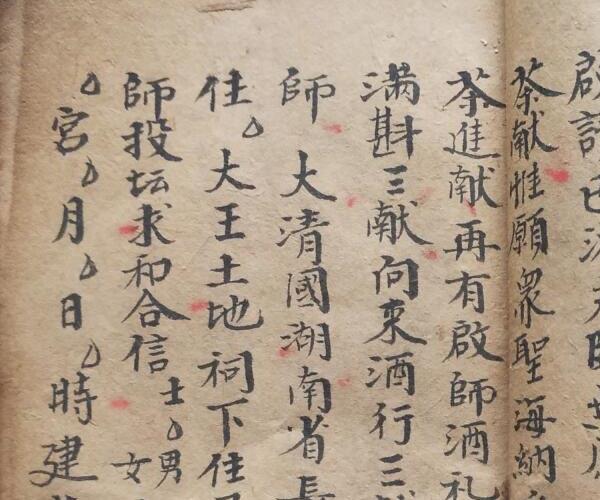 啟請已
茶献惟願衆聖海納
茶進献再有啟師酒礼
满斟三献向来酒行三献
師 大清國湖南省長
住 大王土地祠下住
師投坛求和合信士 男 女
宮 月 日 時建